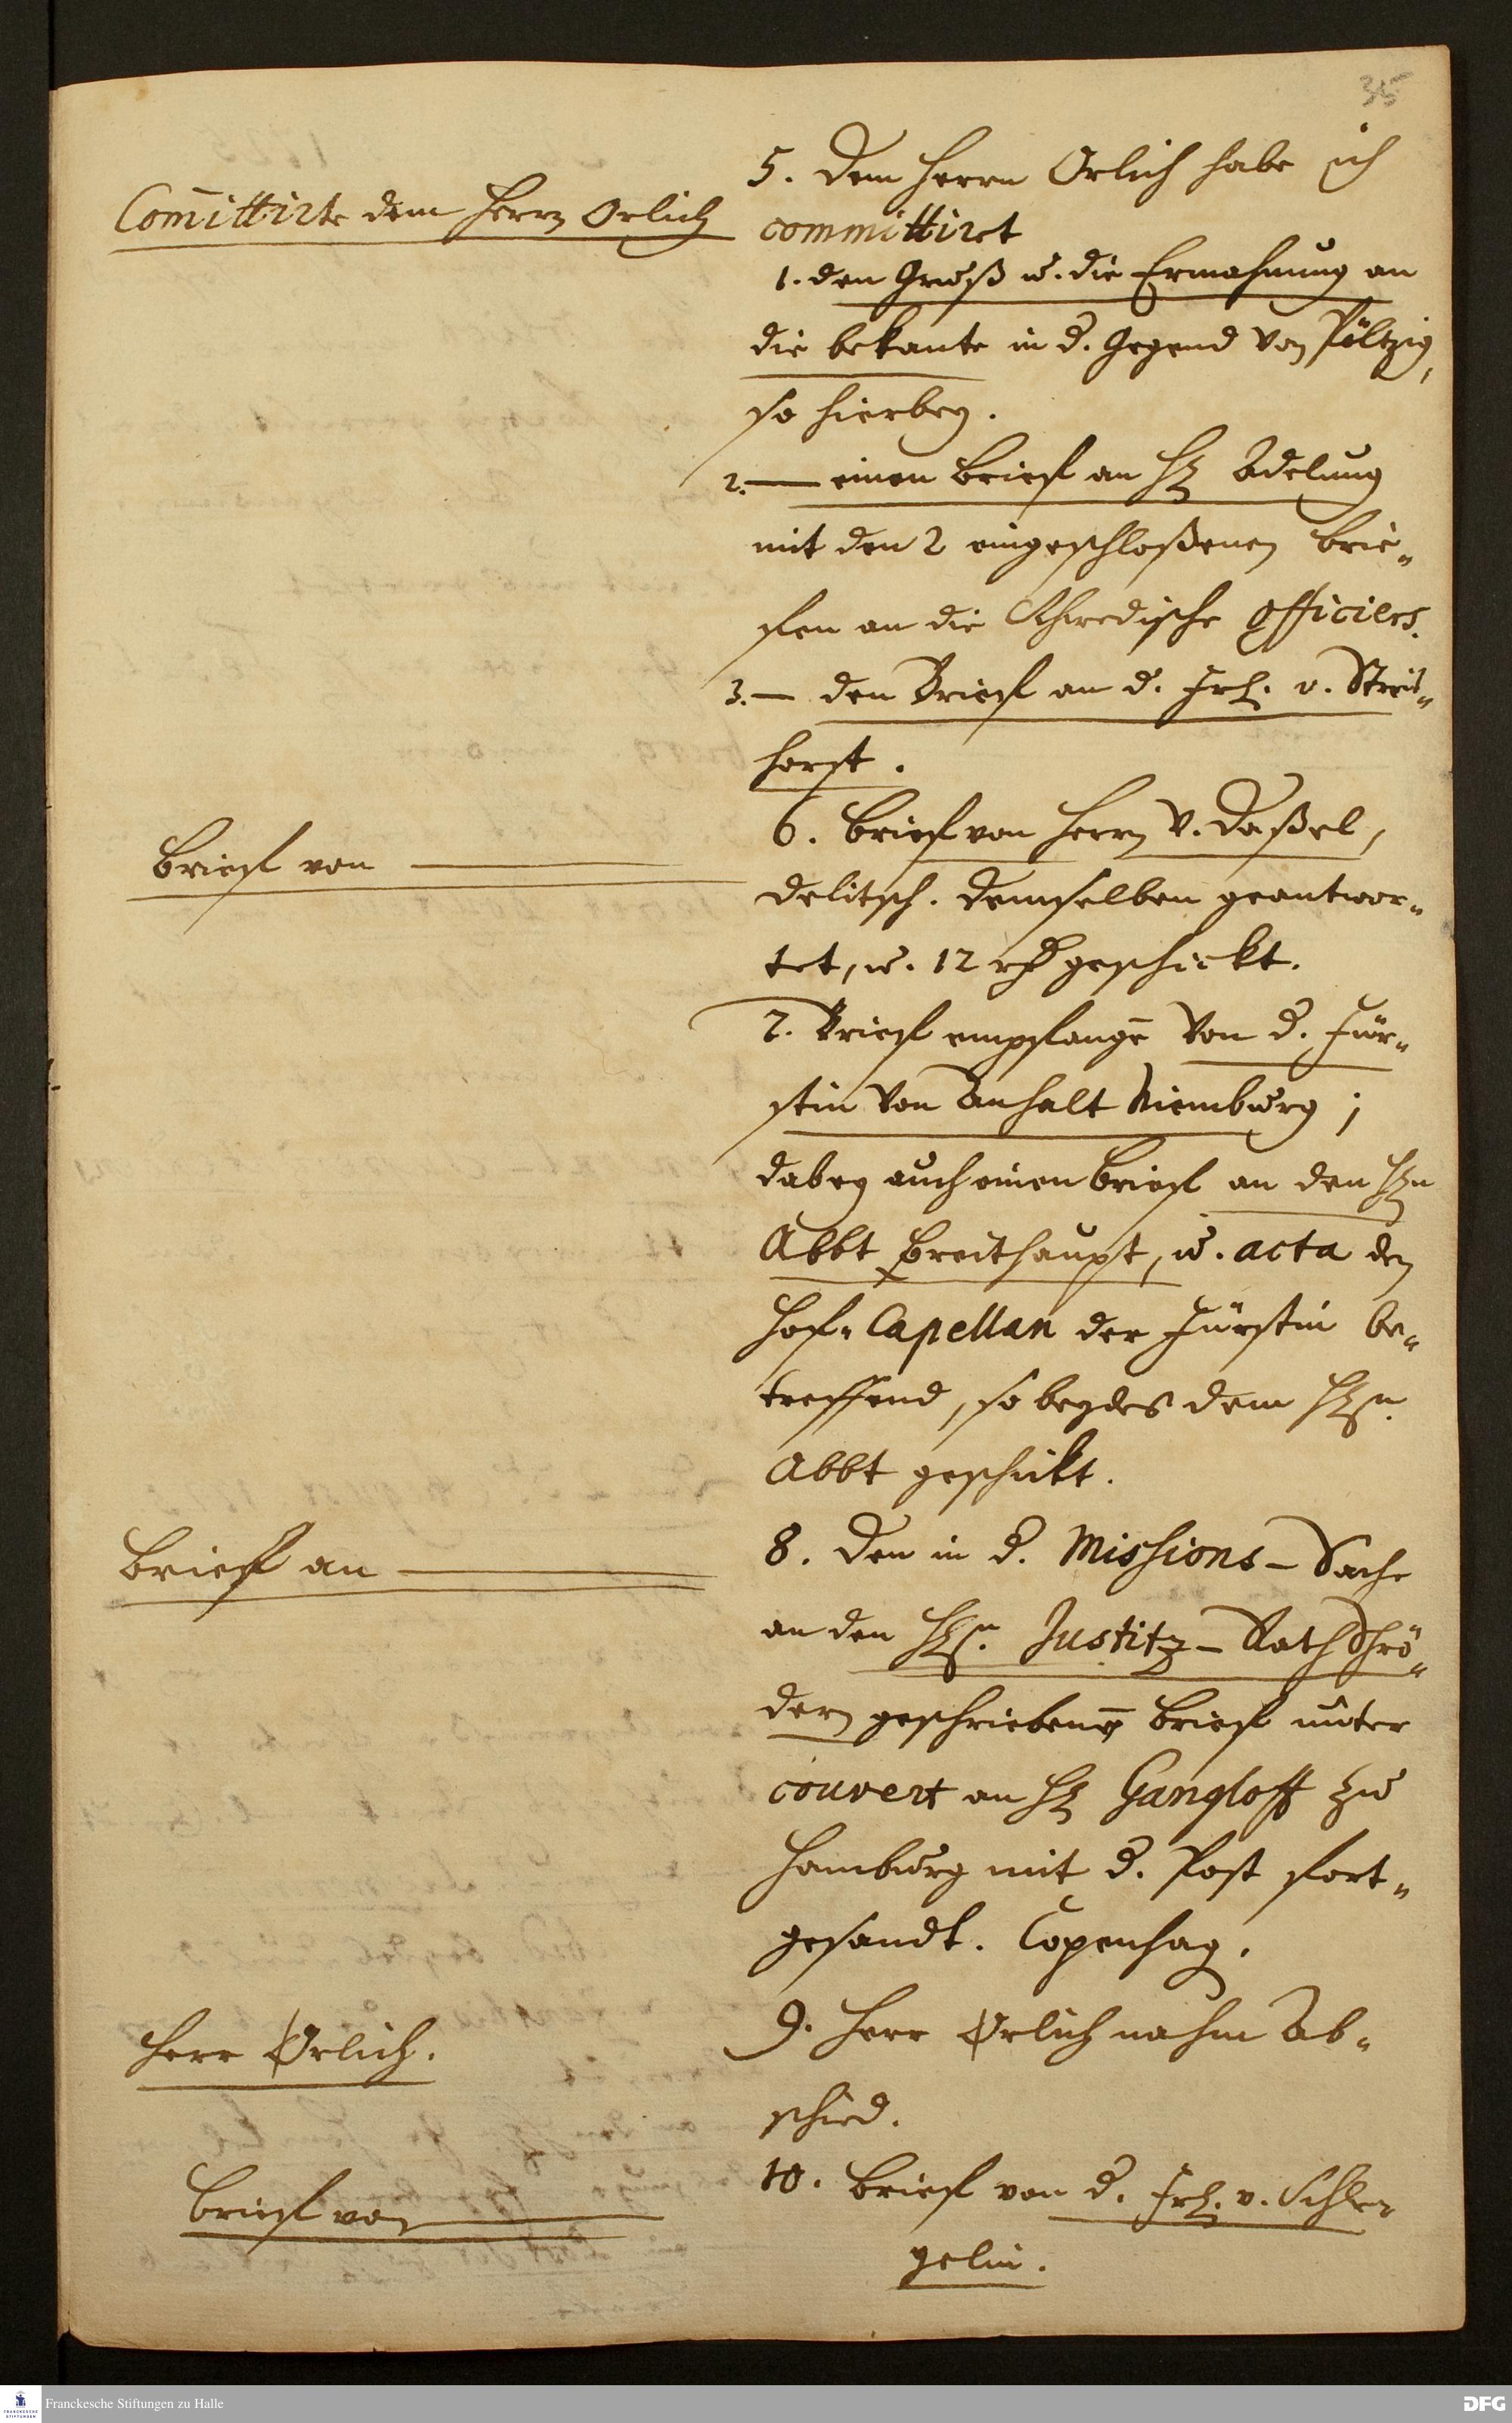 35
5. Dem Herrn Orlich habe ich
Com̄ittirte dem Herrn Orlich
committiret
1. den Gruß u. die Ermahnung an
die bekante in d. Gegend von Pöltzig,
so hierbey.
2. — einen Brief an H Adelung
mit den 2 eingeschloßenen Brie„
fen an die Schwedische Officiers.
3. — den Brief an d. Frl. v.
horst.
6. Brief von Herrn v. Daßel,
Brief von
Delitsch. demselben geantwor„
tet, u. 12 rh geschickt.
7. Brief empfangē von d. Für„
stin von Anhalt Niemburg;
dabey auch einen Brief an den Hn
Abbt Breithaupt, u. acta den
Hof„Capellan der Fürstin be„
treffend, so beydes dem Hn
Abbt geschickt.
8. Den in d. Missions-Sache
Brief an
an den Hn. Justitz-Rath Schrö„
dern geschriebenen Brief unter
couvert an H Gangloff zu
Hamburg mit d. Post fort„
gesandt. Copenhag.
9. Herr Orlich nahm Ab„
Herr Orlich.
schied.
10. Brief von d. Frl. v. Schle„
Brief von
gelin.
Franckesche Stiftungen zu Halle
DFG